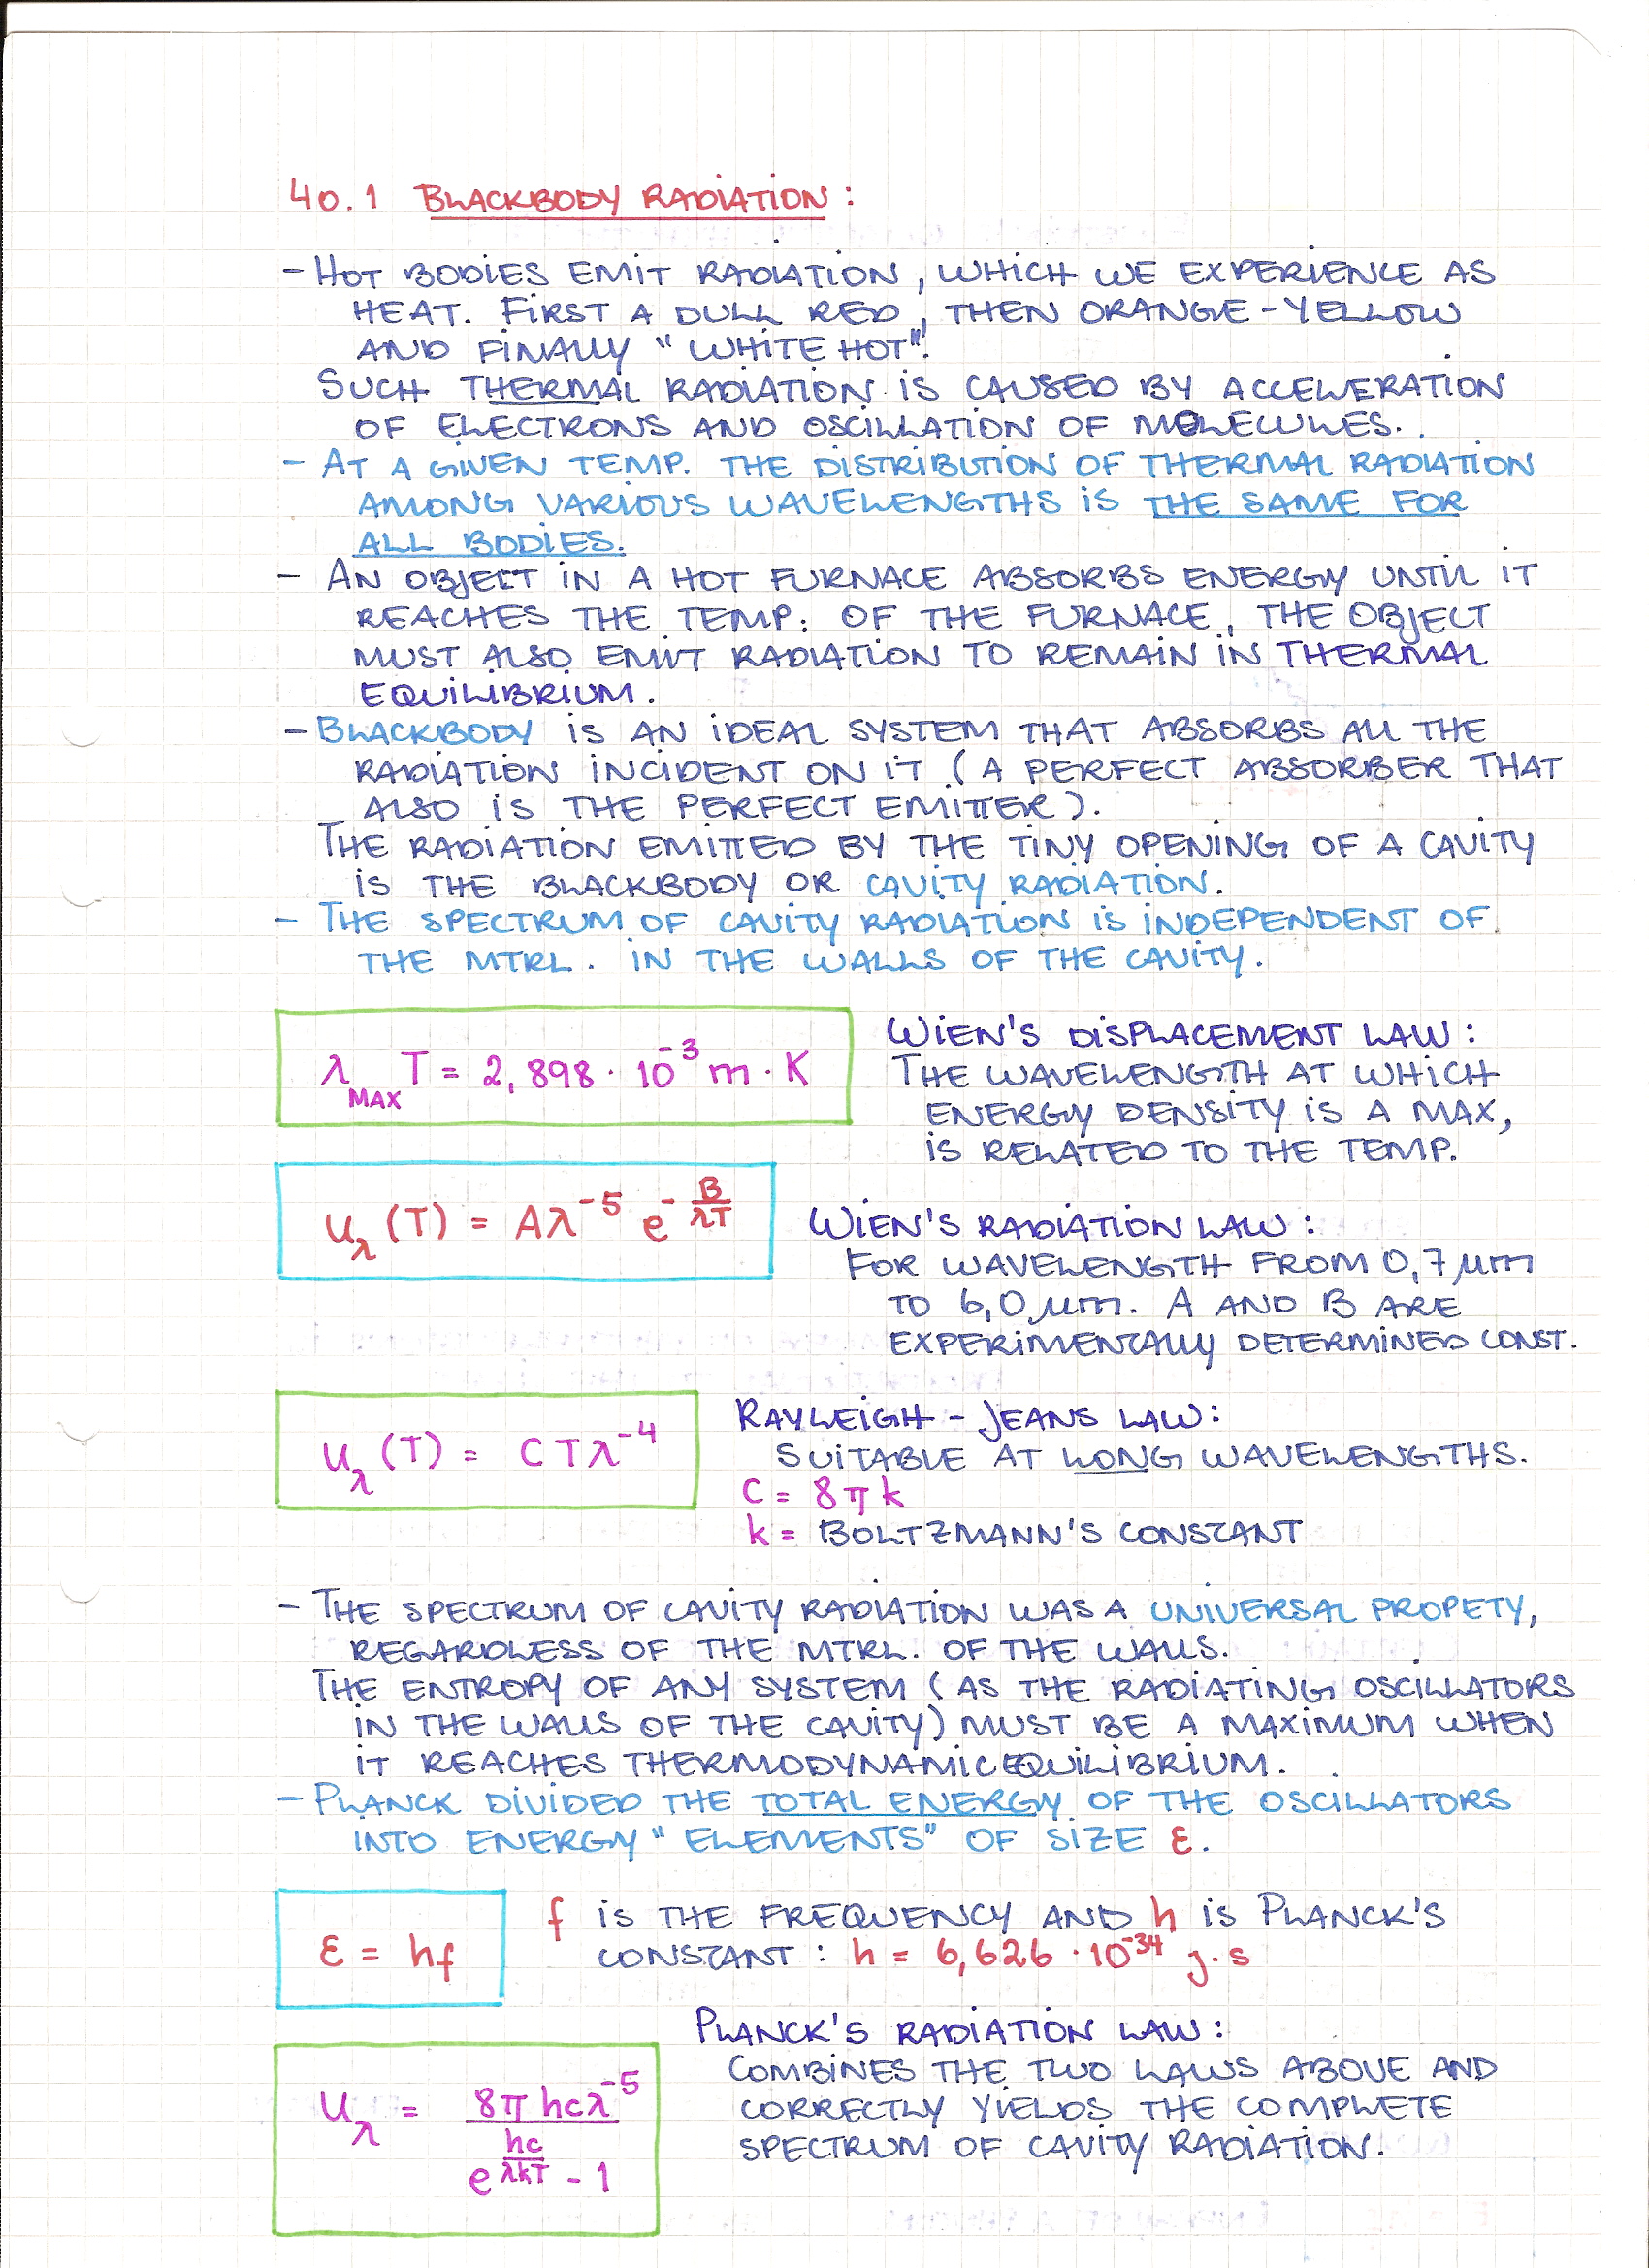 40.1 BLACKBODY RADIATION:
- HOT BODIES EMIT RADIATION, WHICH WE EXPERIENCE AS
HEAT. FIRST A DULL RED, THEN ORANGE-YELLOW
AND FINALLY "WHITE HOT".
SUCH THERMAL RADIATION IS CAUSED BY ACCELERATION
OF ELECTRONS AND OSCILLATION OF MOLECULES.
- AT A GIVEN TEMP. THE DISTRIBUTION OF THERMAL RADIATION
AMONG VARIOUS WAVELENGTHS IS THE SAME FOR
ALL BODIES.
- AN OBJECT IN A HOT FURNACE ABSORBS ENERGY UNTIL IT
REACHES THE TEMP. OF THE FURNACE, THE OBJECT
MUST ALSO EMIT RADIATION TO REMAIN IN THERMAL
EQUILIBRIUM.
- BLACKBODY IS AN IDEAL SYSTEM THAT ABSORBS ALL THE
RADIATION INCIDENT ON IT (A PERFECT ABSORBER THAT
ALSO IS THE PERFECT EMITTER).
THE RADIATION EMITTED BY THE TINY OPENING OF A CAVITY
IS THE BLACKBODY OR CAVITY RADIATION.
- THE SPECTRUM OF CAVITY RADIATION IS INDEPENDENT OF
THE MTRL. IN THE WALLS OF THE CAVITY.
λ_MAX T = 2,898 · 10⁻³ m · K
WIEN'S DISPLACEMENT LAW:
THE WAVELENGTH AT WHICH
ENERGY DENSITY IS A MAX,
IS RELATED TO THE TEMP.
u_λ(T) = Aλ⁻⁵ e^(-B/λT)
WIEN'S RADIATION LAW:
FOR WAVELENGTH FROM 0,7 μm
TO 6,0 μm. A AND B ARE
EXPERIMENTALLY DETERMINED CONST.
u_λ(T) = CTλ⁻⁴
RAYLEIGH-JEANS LAW:
SUITABLE AT LONG WAVELENGTHS.
C = 8πk
k = BOLTZMANN'S CONSTANT
- THE SPECTRUM OF CAVITY RADIATION WAS A UNIVERSAL PROPETY,
REGARDLESS OF THE MTRL. OF THE WALLS.
THE ENTROPY OF ANY SYSTEM (AS THE RADIATING OSCILLATORS
IN THE WALLS OF THE CAVITY) MUST BE A MAXIMUM WHEN
IT REACHES THERMODYNAMIC EQUILIBRIUM.
- PLANCK DIVIDED THE TOTAL ENERGY OF THE OSCILLATORS
INTO ENERGY "ELEMENTS" OF SIZE ε.
ε = hf
f IS THE FREQUENCY AND h IS PLANCK'S
CONSTANT: h = 6,626 · 10⁻³⁴ J·s
u_λ = 8πhcλ⁻⁵ / (e^(hc/λkT) - 1)
PLANCK'S RADIATION LAW:
COMBINES THE TWO LAWS ABOVE AND
CORRECTLY YIELDS THE COMPLETE
SPECTRUM OF CAVITY RADIATION.